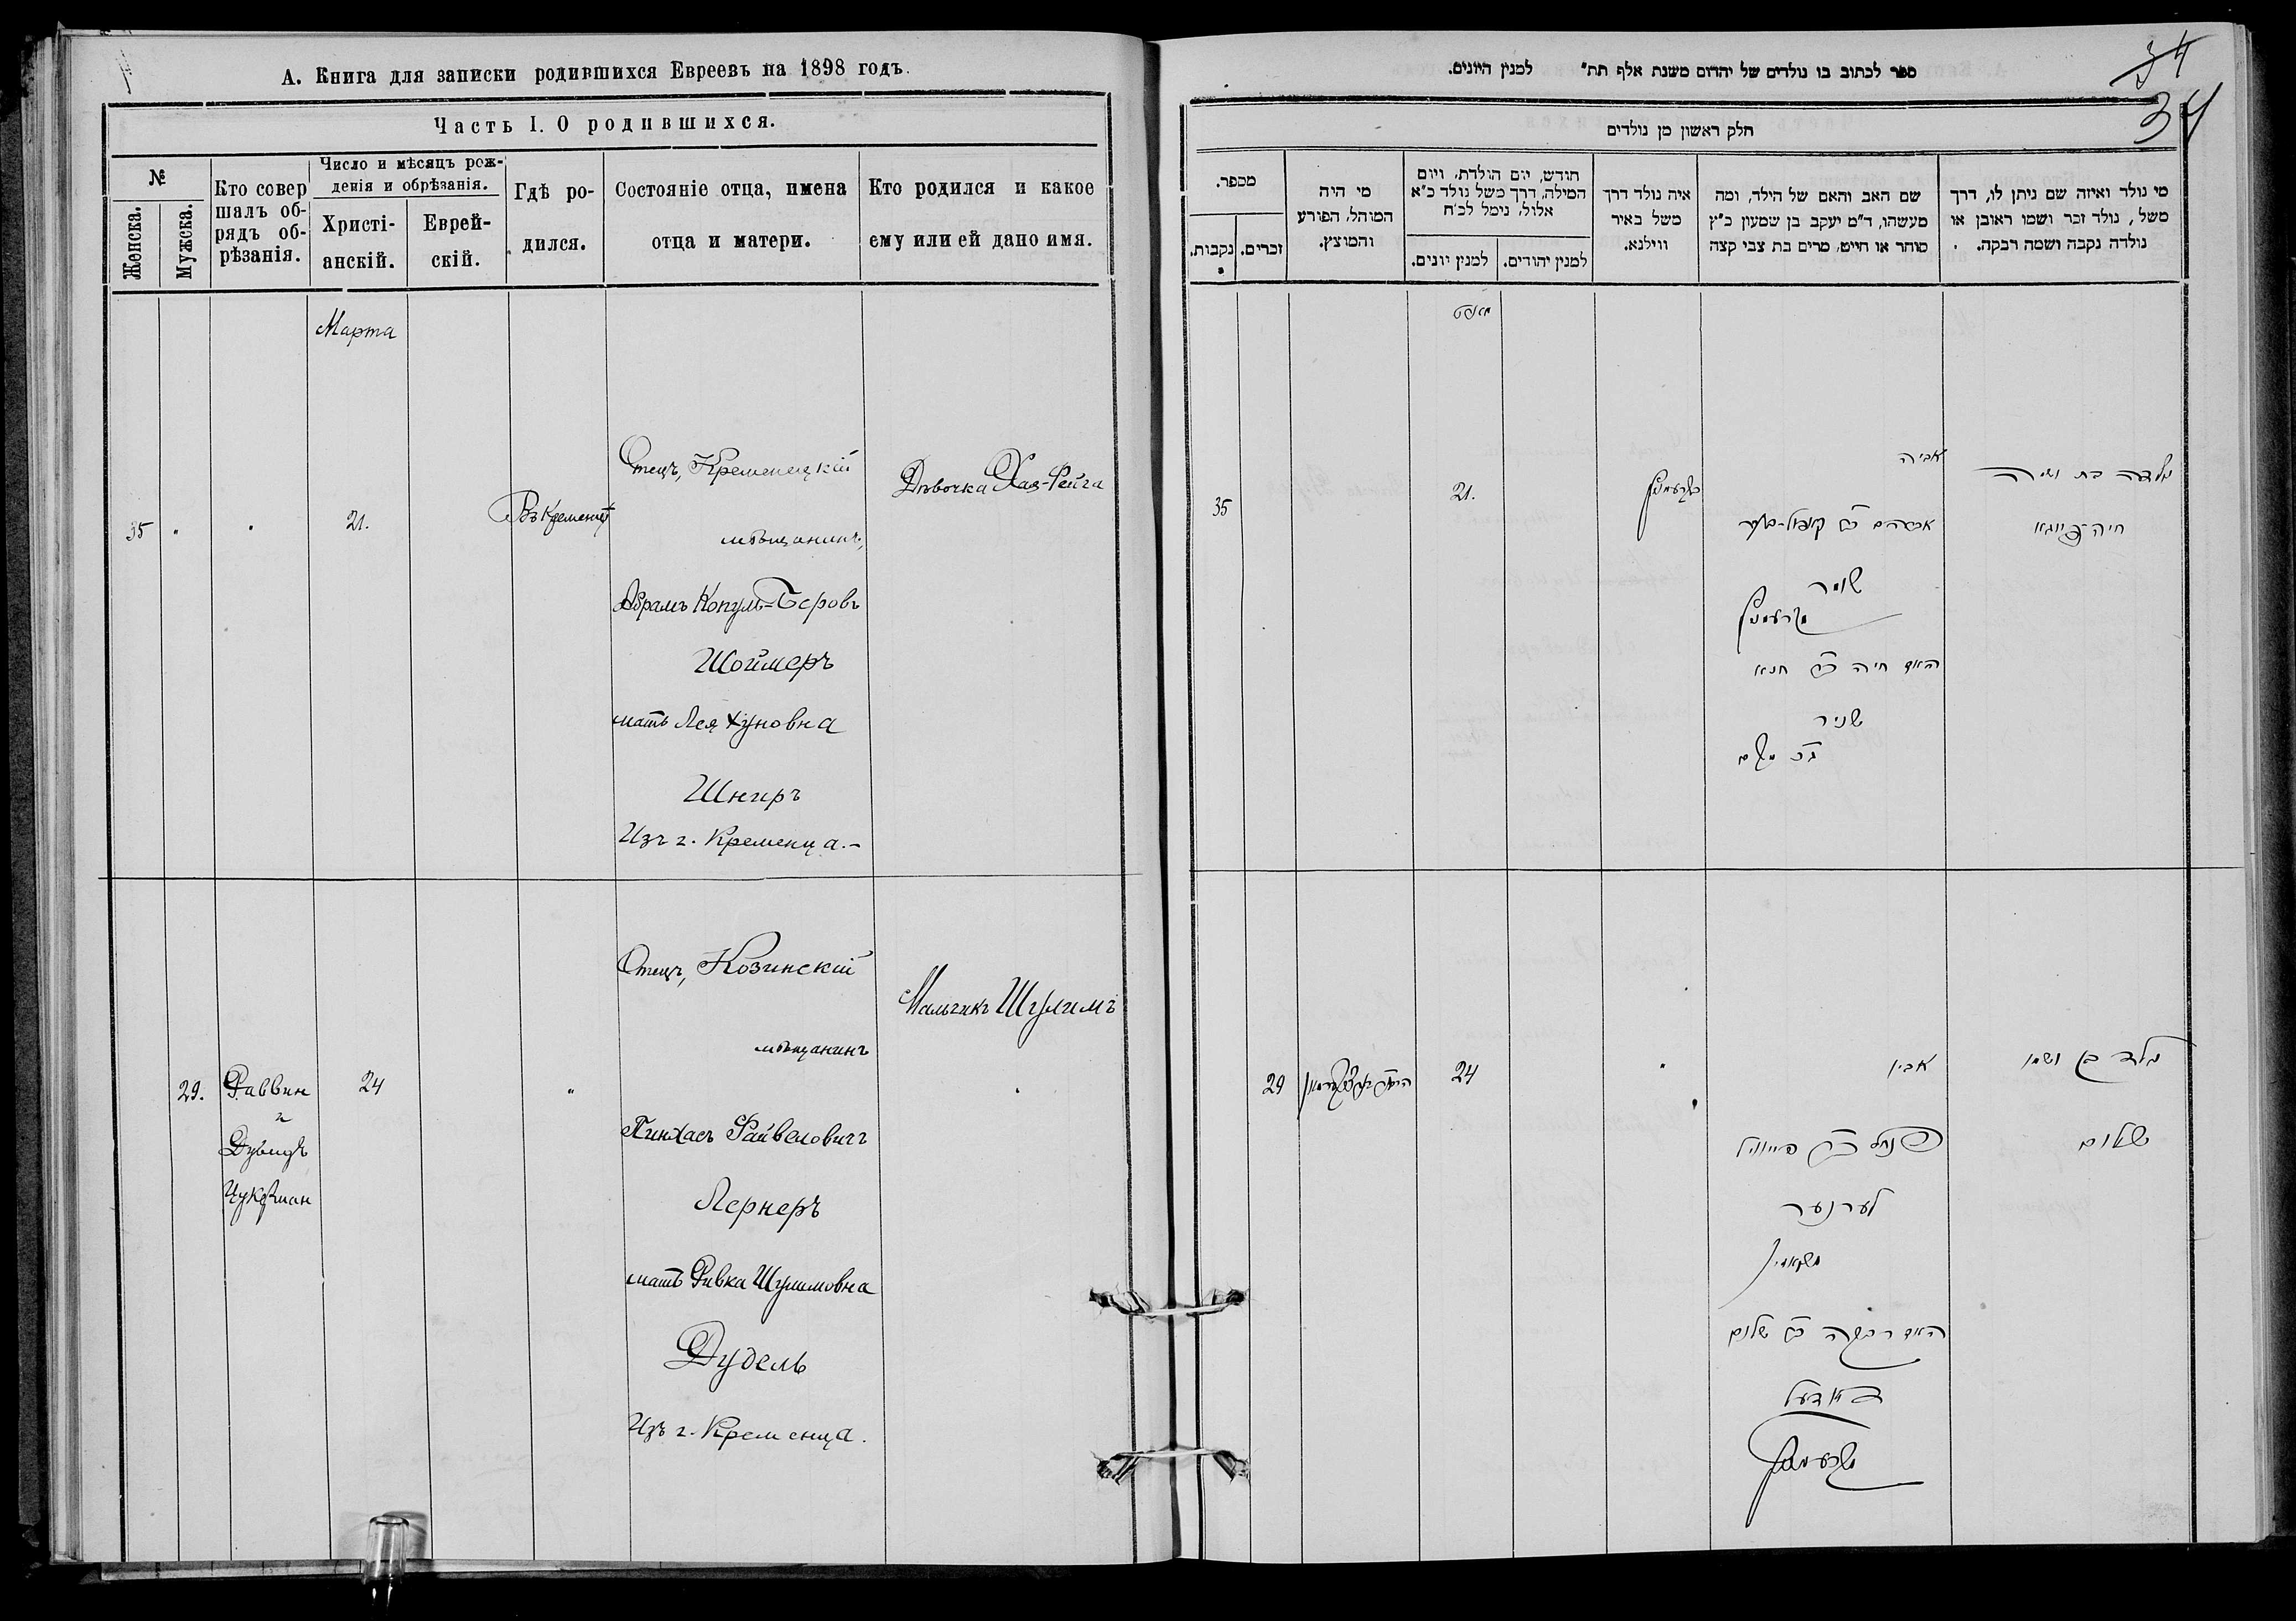 А. Книга для записки родившихся Евреевъ на 1898 годъ.
Часть I. О родившихся.
№
Женска.
Мужска.
Кто совер
шалъ об-
рядъ об-
рѣзанія.
Число и мѣсяцъ рож-
денія и обрѣзанія.
Христі-
анскій.
Еврей-
скій.
Гдѣ ро-
дился.
Состояніе отца, имена
отца и матери.
Кто родился и какое
ему или ей дано имя.
Марта
35 " " 21.
Въ Кременцѣ
Отецъ, Кременецкій
мѣщанинъ,
Абрамъ Копуль=Беровъ
Шоймеръ
мать Лея Хуновна
Шниръ
Изъ г. Кременца.-
Дѣвочка Хая-Фейга
29.
Раввин
и
Дувидъ
Цукерман
24
"
Отецъ, Козинскій
мѣщанинъ
Пинхасъ Файвеловичъ
Лернеръ
мать Ривка Шулимовна
Дудель
Изъ г. Кременца.
Мальчикъ Шулимъ
34
34
ספר לכתוב בו נולדים של יהדום משנת אלף תת״ למנין היונים.
חלק ראשון מן נולדים
מי נולד ואיזה שם ניתן לו, דרך
משל, נולד זכר ושמו ראובן או
נולדה נקבה ושמה רבקה.
שם האב והאם של הילד, ומה
מעשהו, ד״מ יעקב בן שמעון כ״ץ
סוחר או חייט, מרים בת צבי קצה
איה נולד דרך
משל באיר
ווילנא.
חודש, יום הולדת, ויום
המילה, דרך משל נולד כ״א
אלול, נימל לכ״ח
למנין יהודים.
למנין יונים.
מי היה
המוהל, הפורע
והמוצץ.
מספר.
זכרים.
נקבות.
מארט
נולדה בת ושמה
חיה־פייגא
אביה
אברהם
שומר
קרעמניץ
האם חיה חנא
שניר
קרעמניץ
21.
35
נולד בן ושמו
שלום
אביו
פנחס פייוויל
לערנער
האם רבקה שלום
דודעל
קרעמניץ
"
24
29